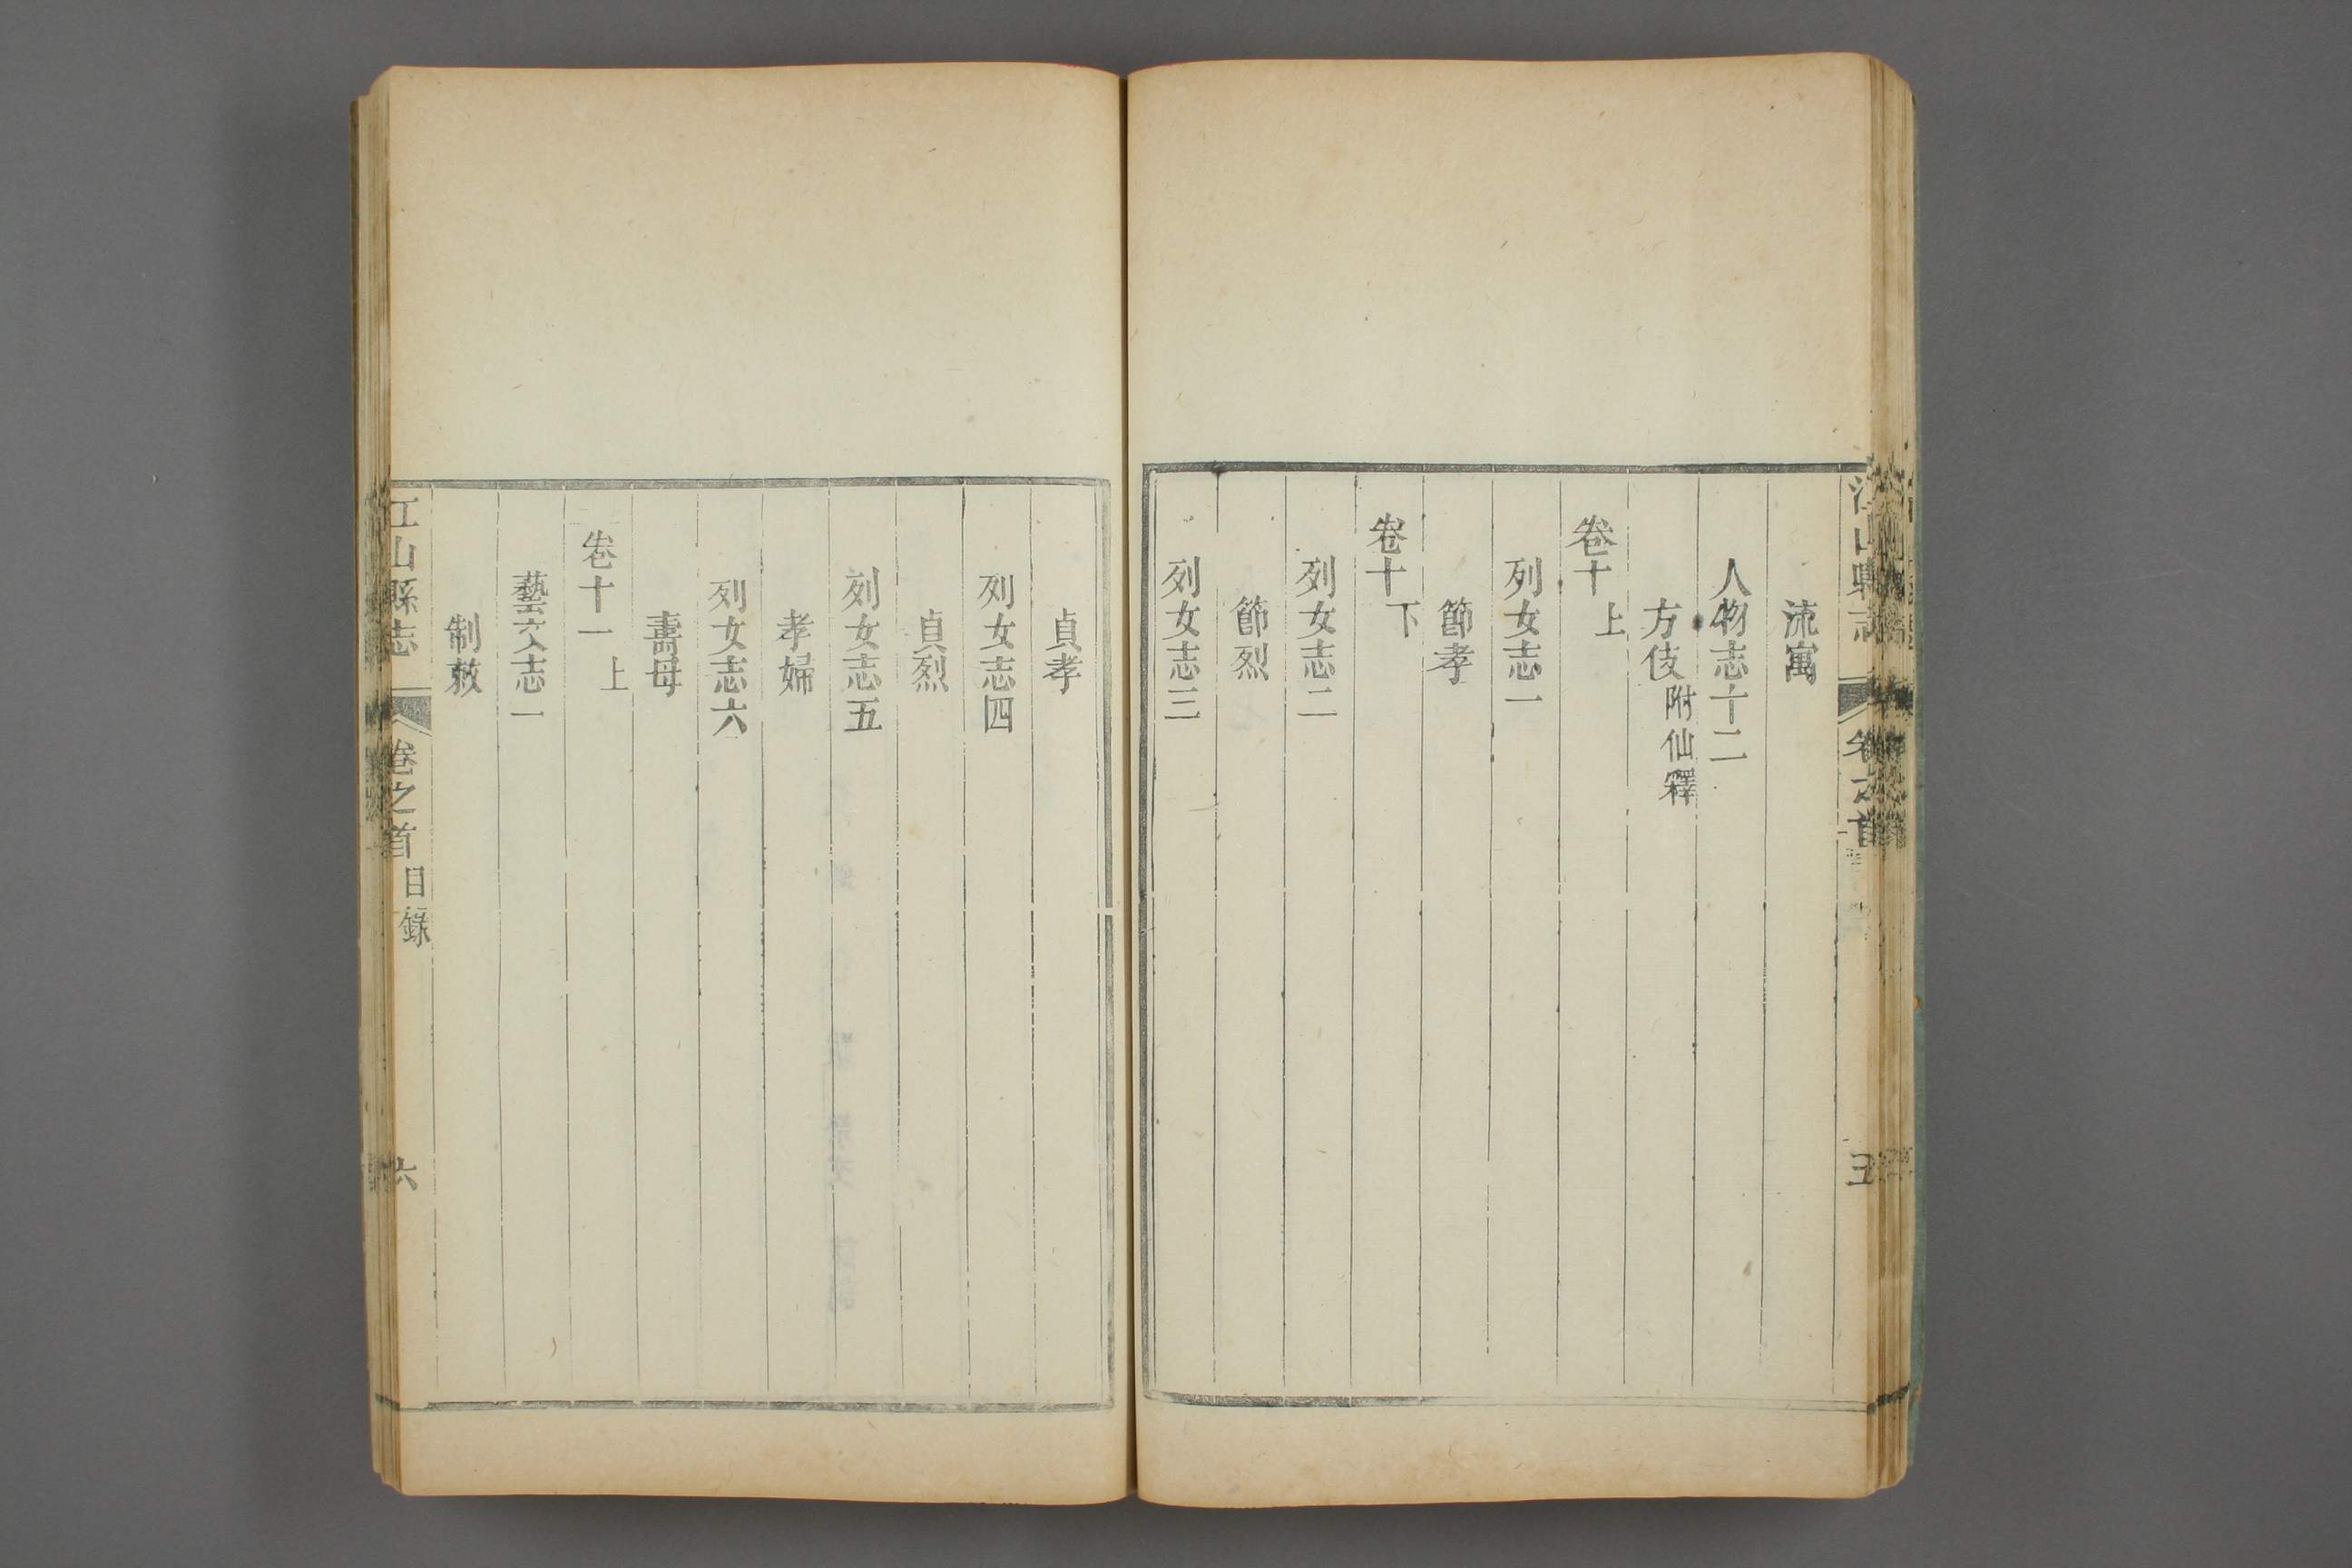 江山縣志 卷之首 五
流寓
人物志十二
方伎附仙釋
卷十上
列女志一
節孝
卷十下
列女志二
節烈
列女志三
貞孝
列女志四
貞烈
列女志五
孝婦
列女志六
壽母
卷十一上
藝文志一
制敕
江山縣志 卷之首 目錄 六